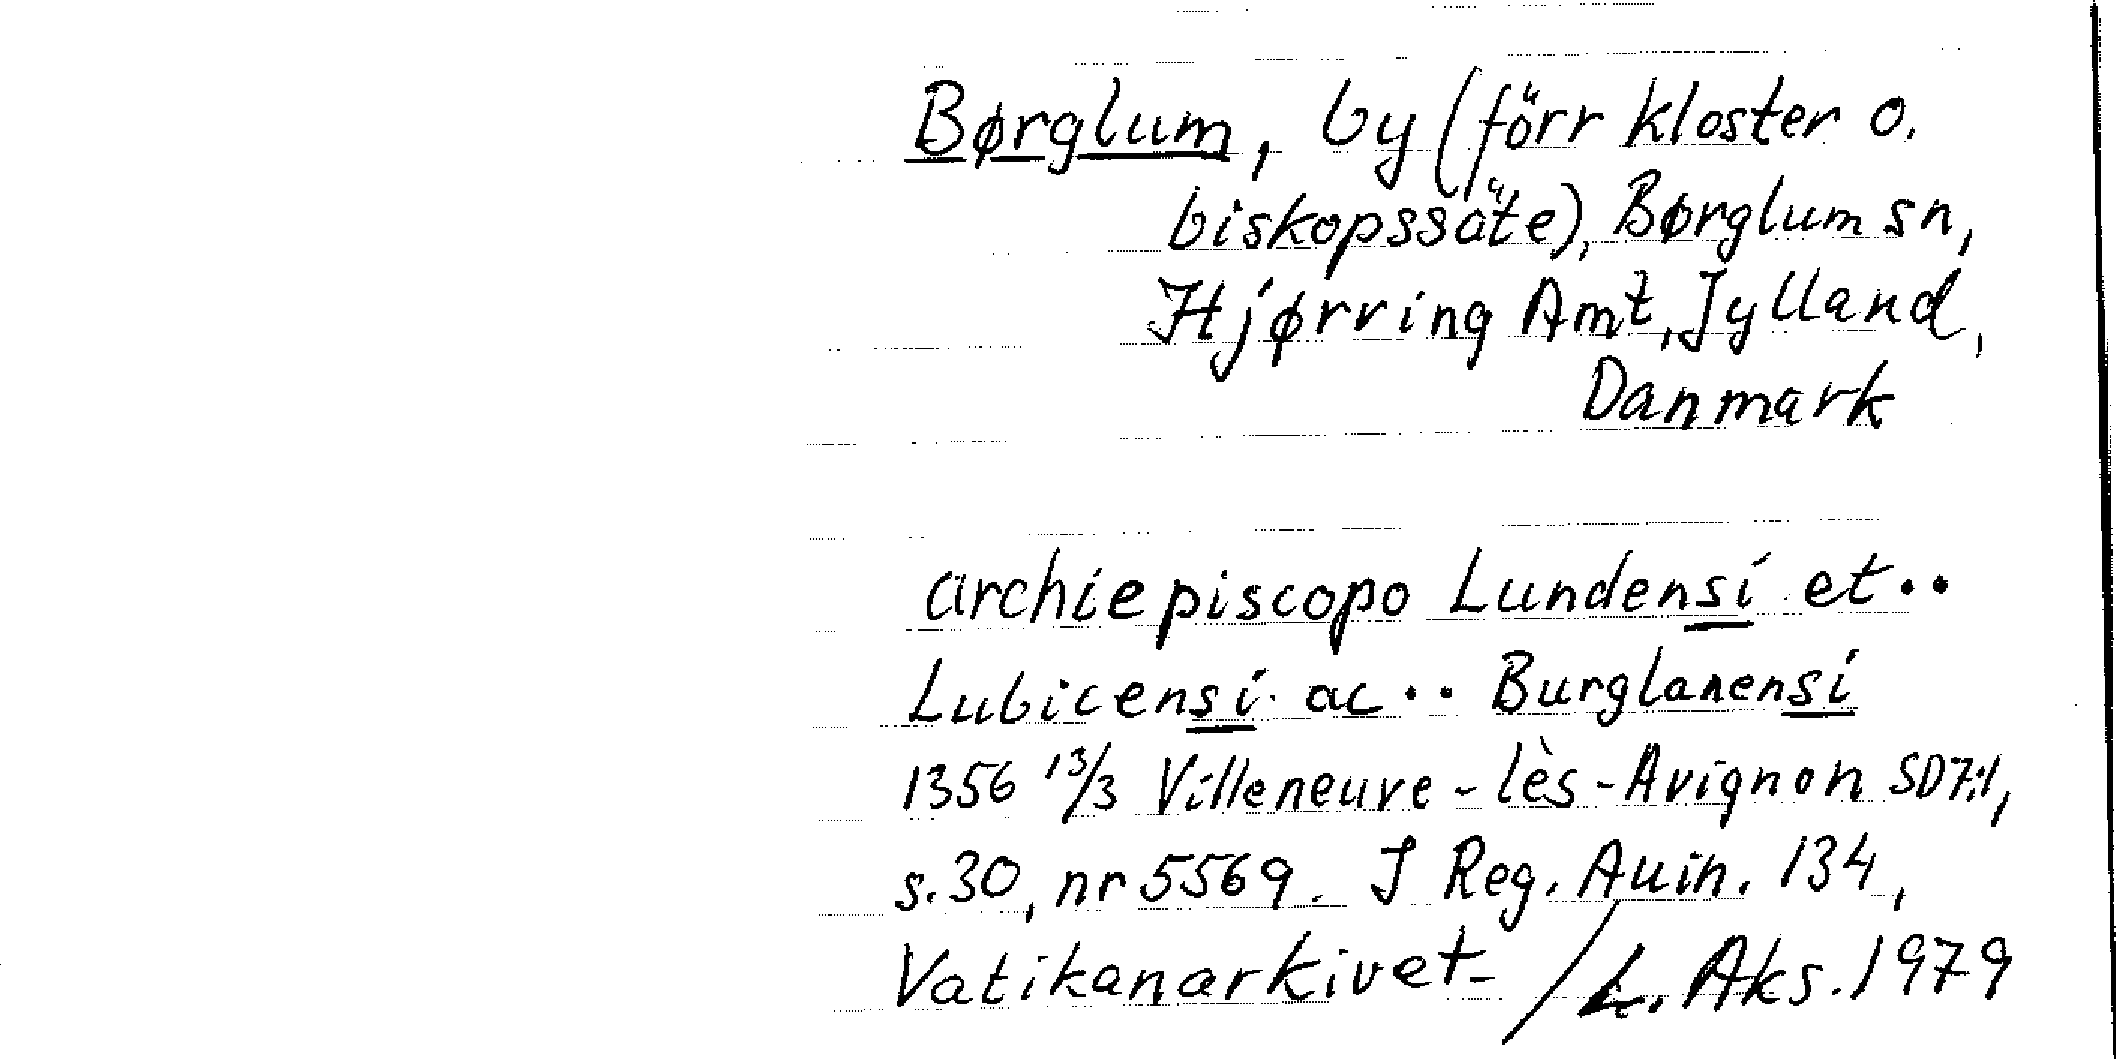 Børglum, by (förr kloster o.
biskopssäte), Børglum sn,
Hjørring Amt, Jylland,
Danmark
archiepiscopo Lundensi et ..
Lubicensi ac .. Burglanensi
1356 13/3 Villeneuve-lès-Avignon SD7:1,
s.30, nr 5569. I Reg. Auin. 134,
Vatikanarkivet- /L. Aks. 1979